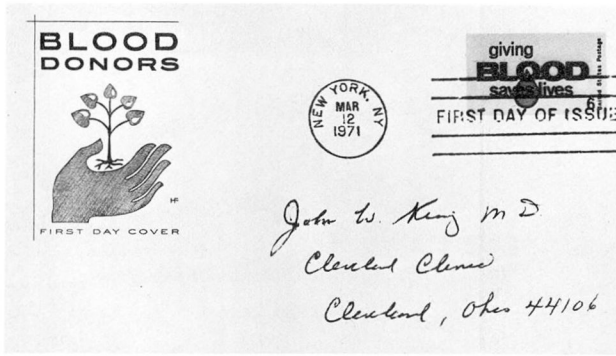 BLOOD
DONORS
HF
FIRST DAY COVER
NEW YORK, NY
MAR
12
1971
giving
BLOOD
saves lives
United States Postage
6¢
FIRST DAY OF ISSUE
John W. King M D.
Cleveland Clinic
Cleveland, Ohio 44106